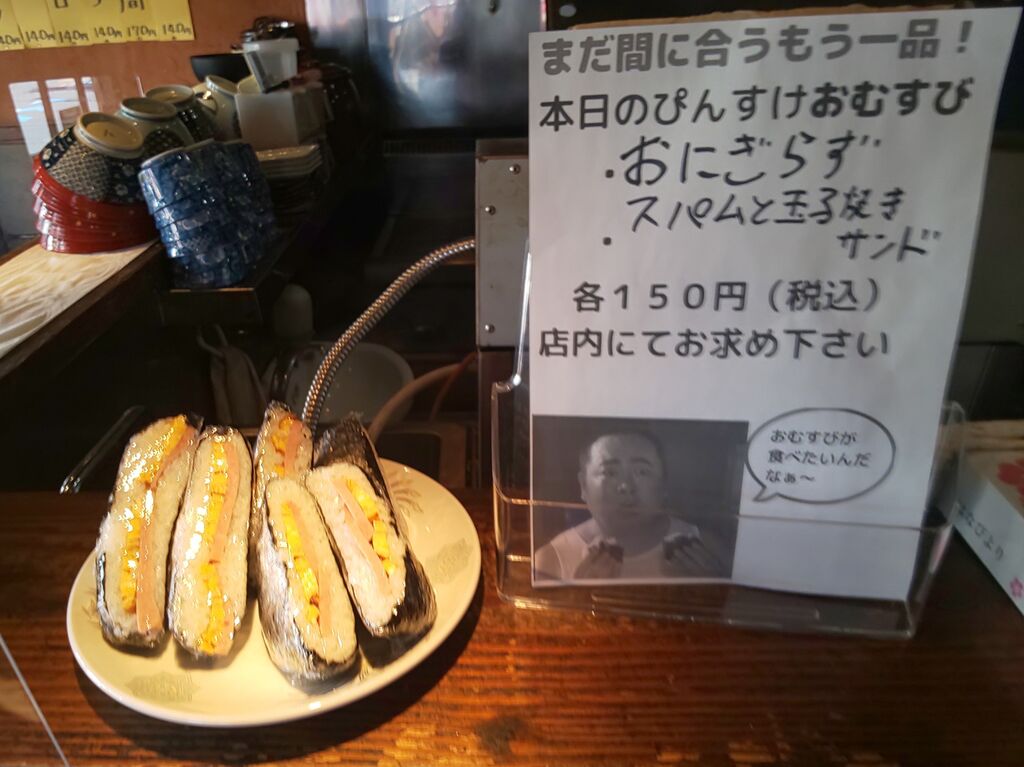 140円 140円 140円 170円 140円
まだ間に合うもう一品!
本日のぴんすけおむすび
・おにぎらず
スパムと玉子焼き
・ サンド
各150円(税込)
店内にてお求め下さい
おむすびが
食べたいんだ
なぁ～